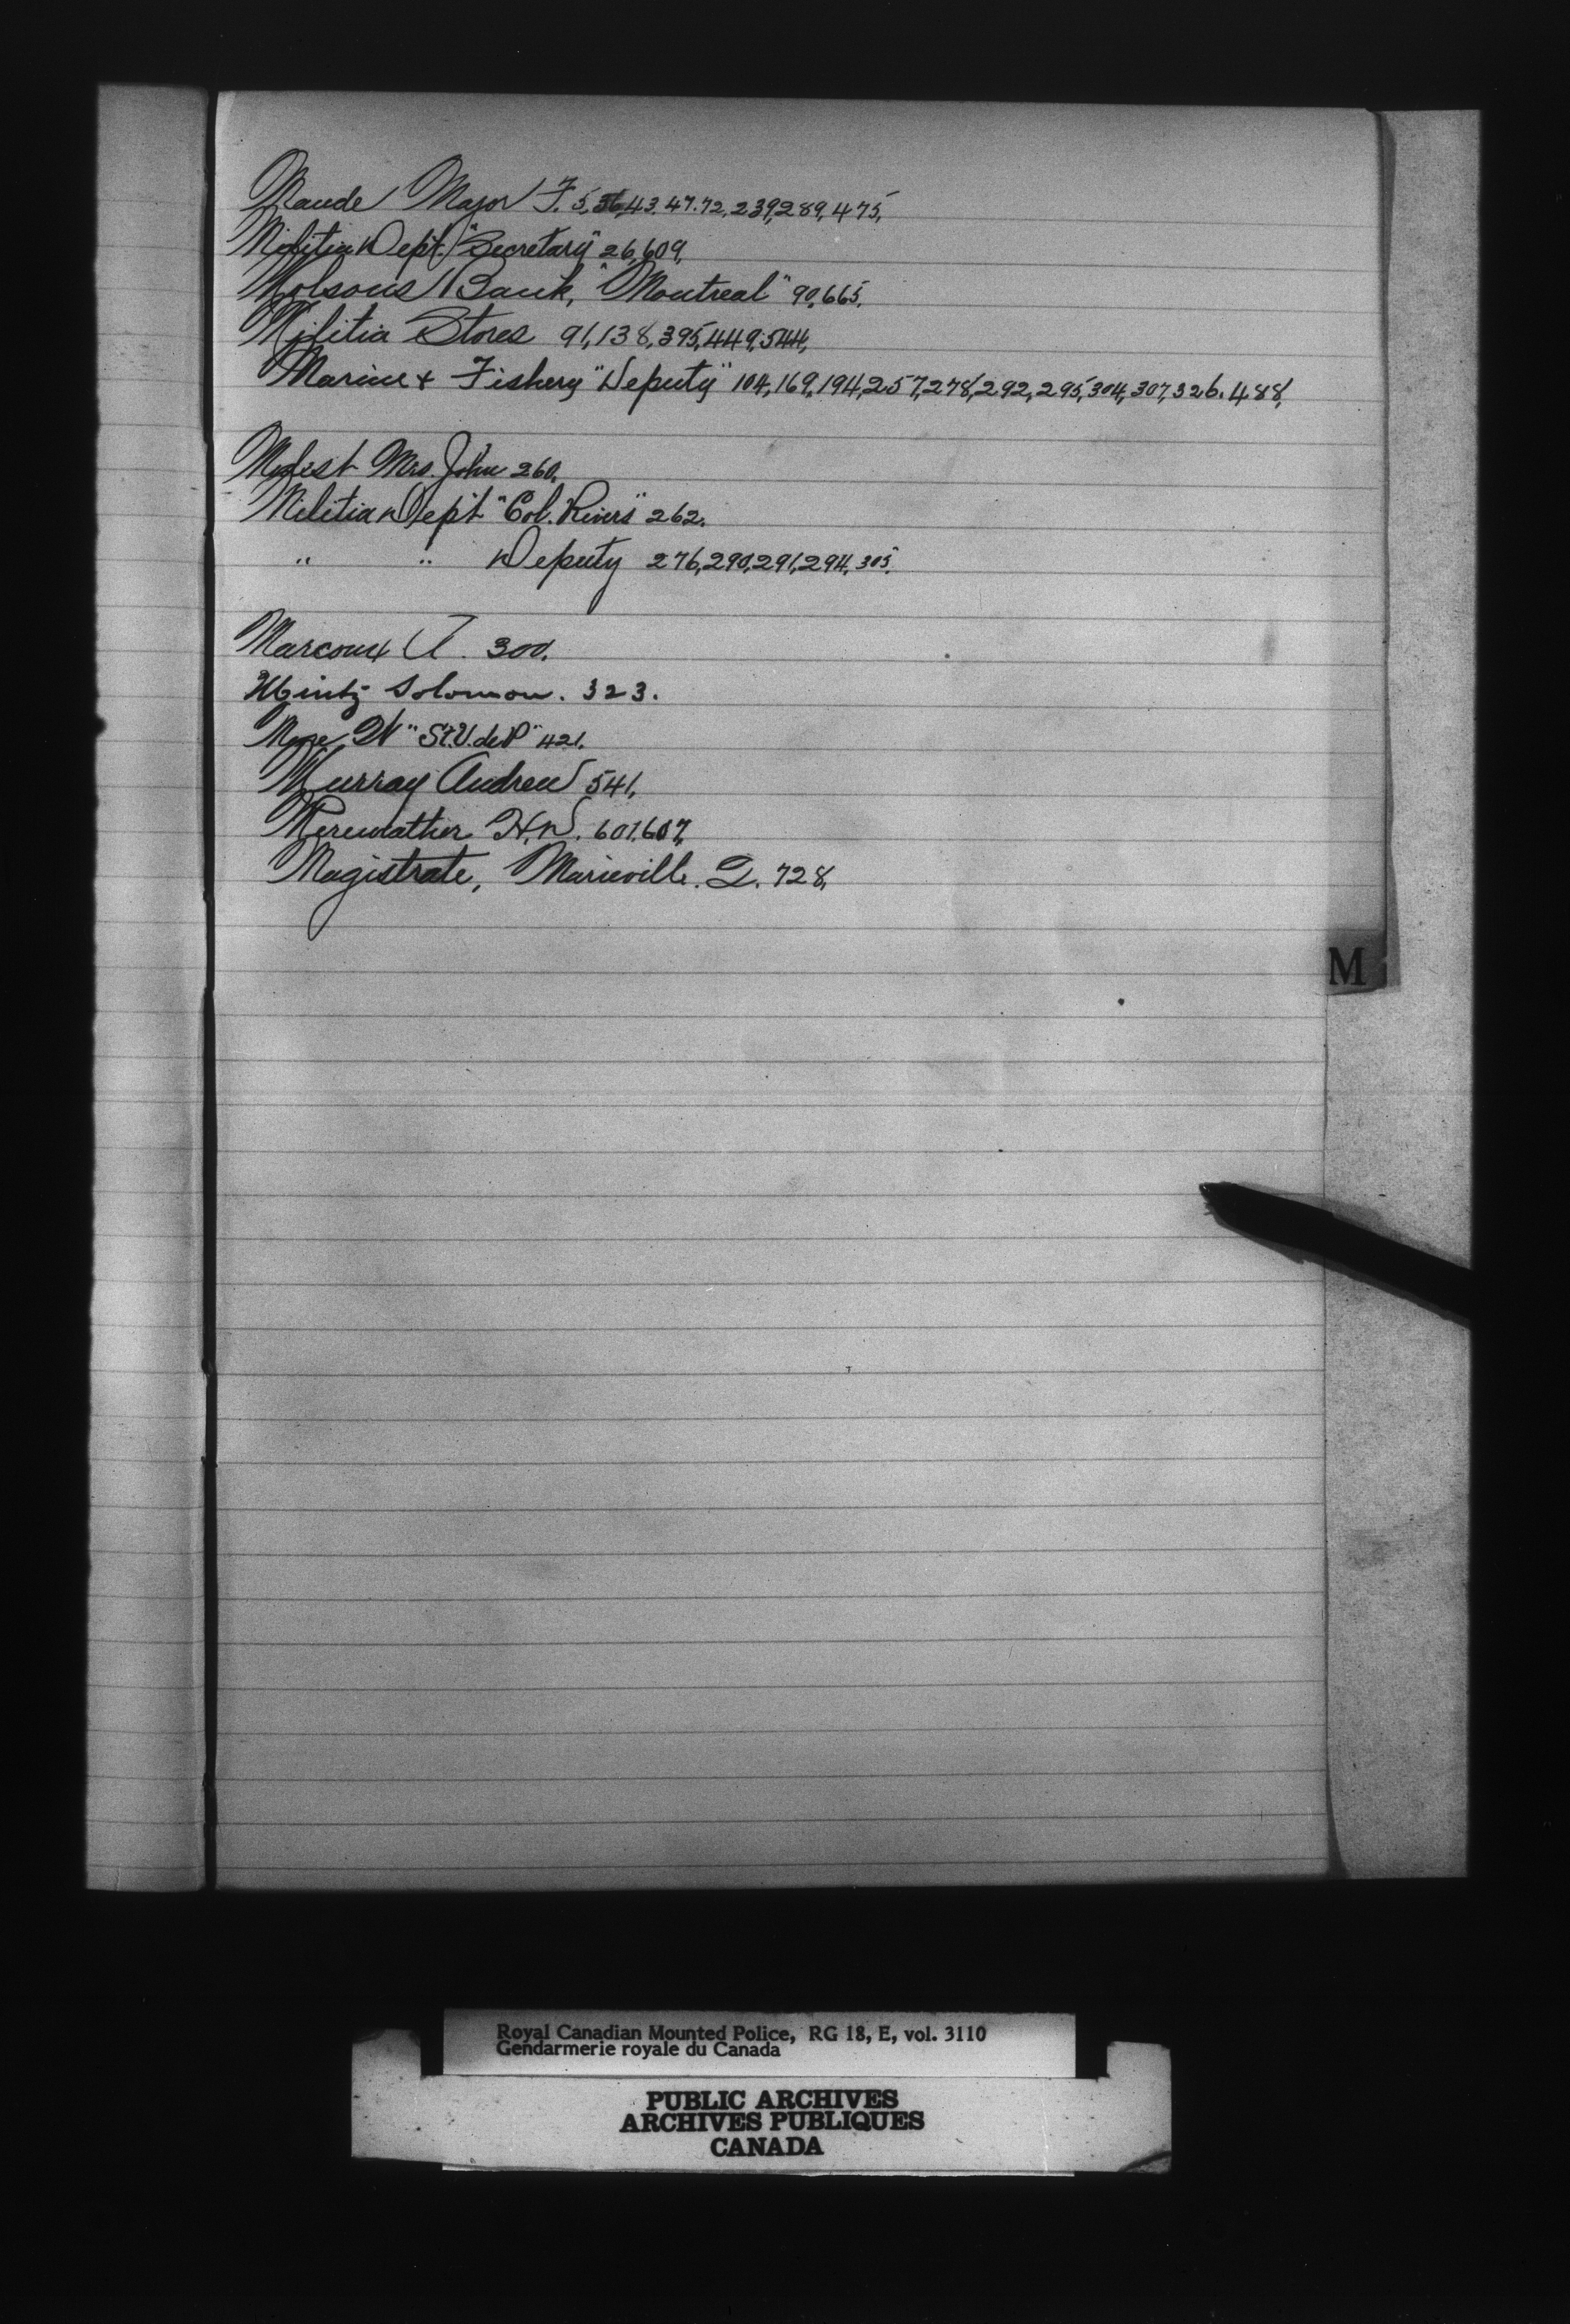 Maude Major F. 5, 36, 43, 47. 72, 239, 289, 475,
Militia Dept. "Secretary" 26, 609,
Molsons Bank, "Montreal" 90, 665,
Militia Stores 91, 138, 395, 449, 544,
Marine & Fishery "Deputy" 104, 169, 194, 257, 278, 292, 295, 304, 307, 326. 488,
Mrs. John 260,
Militia Dept "Col. Rivers" 262.
" " Deputy 276, 290, 291, 294, 305,
Marcoux A. 300.
Mintz Solomon. 323.
W "St. V. de P" 421.
Murray Andrew 541,
Merewather H.W. 601, 607,
Magistrate, Marieville. Q. 728,
M
Royal Canadian Mounted Police, RG 18, E, vol. 3110
Gendarmerie royale du Canada
PUBLIC ARCHIVES
ARCHIVES PUBLIQUES
CANADA